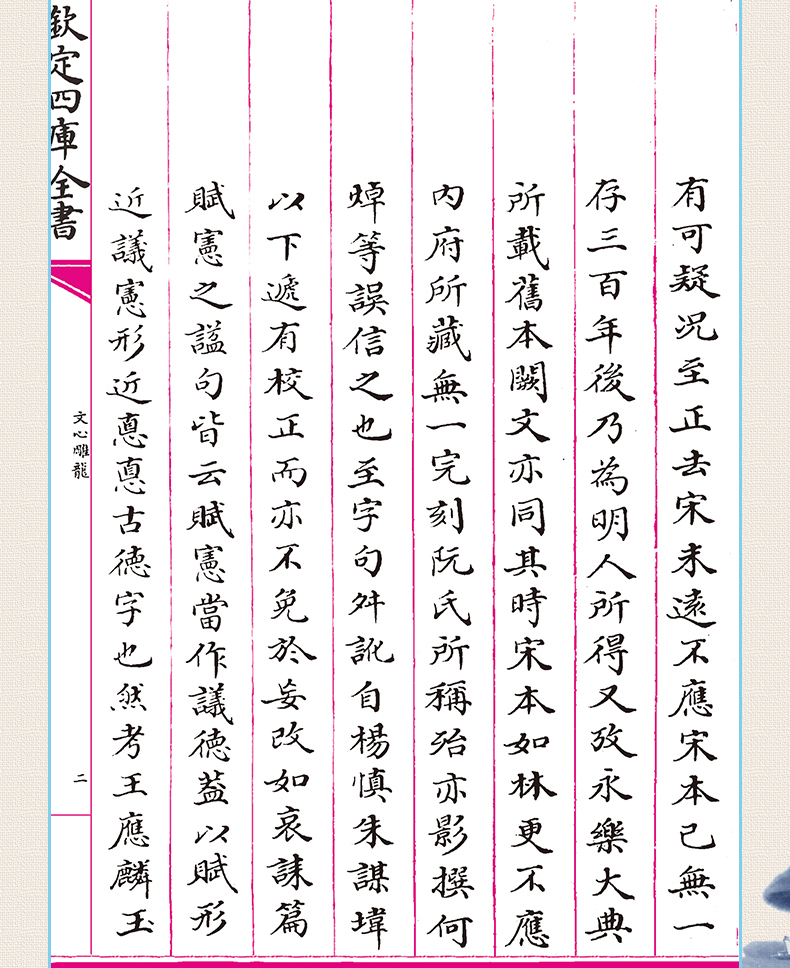 有可疑況至正去宋未遠不應宋本已無一
存三百年後乃為明人所得又攷永樂大典
所載舊本闕文亦同其時宋本如林更不應
內府所藏無一完刻阮氏所稱殆亦影撰何
焯等誤信之也至字句舛訛自楊慎朱謀㙔
以下遞有校正而亦不免於妄改如哀誄篇
賦憲之謚句皆云賦憲當作議德蓋以賦形
近議憲形近悳悳古德字也然考王應麟玉
欽定四庫全書
文心雕龍
二